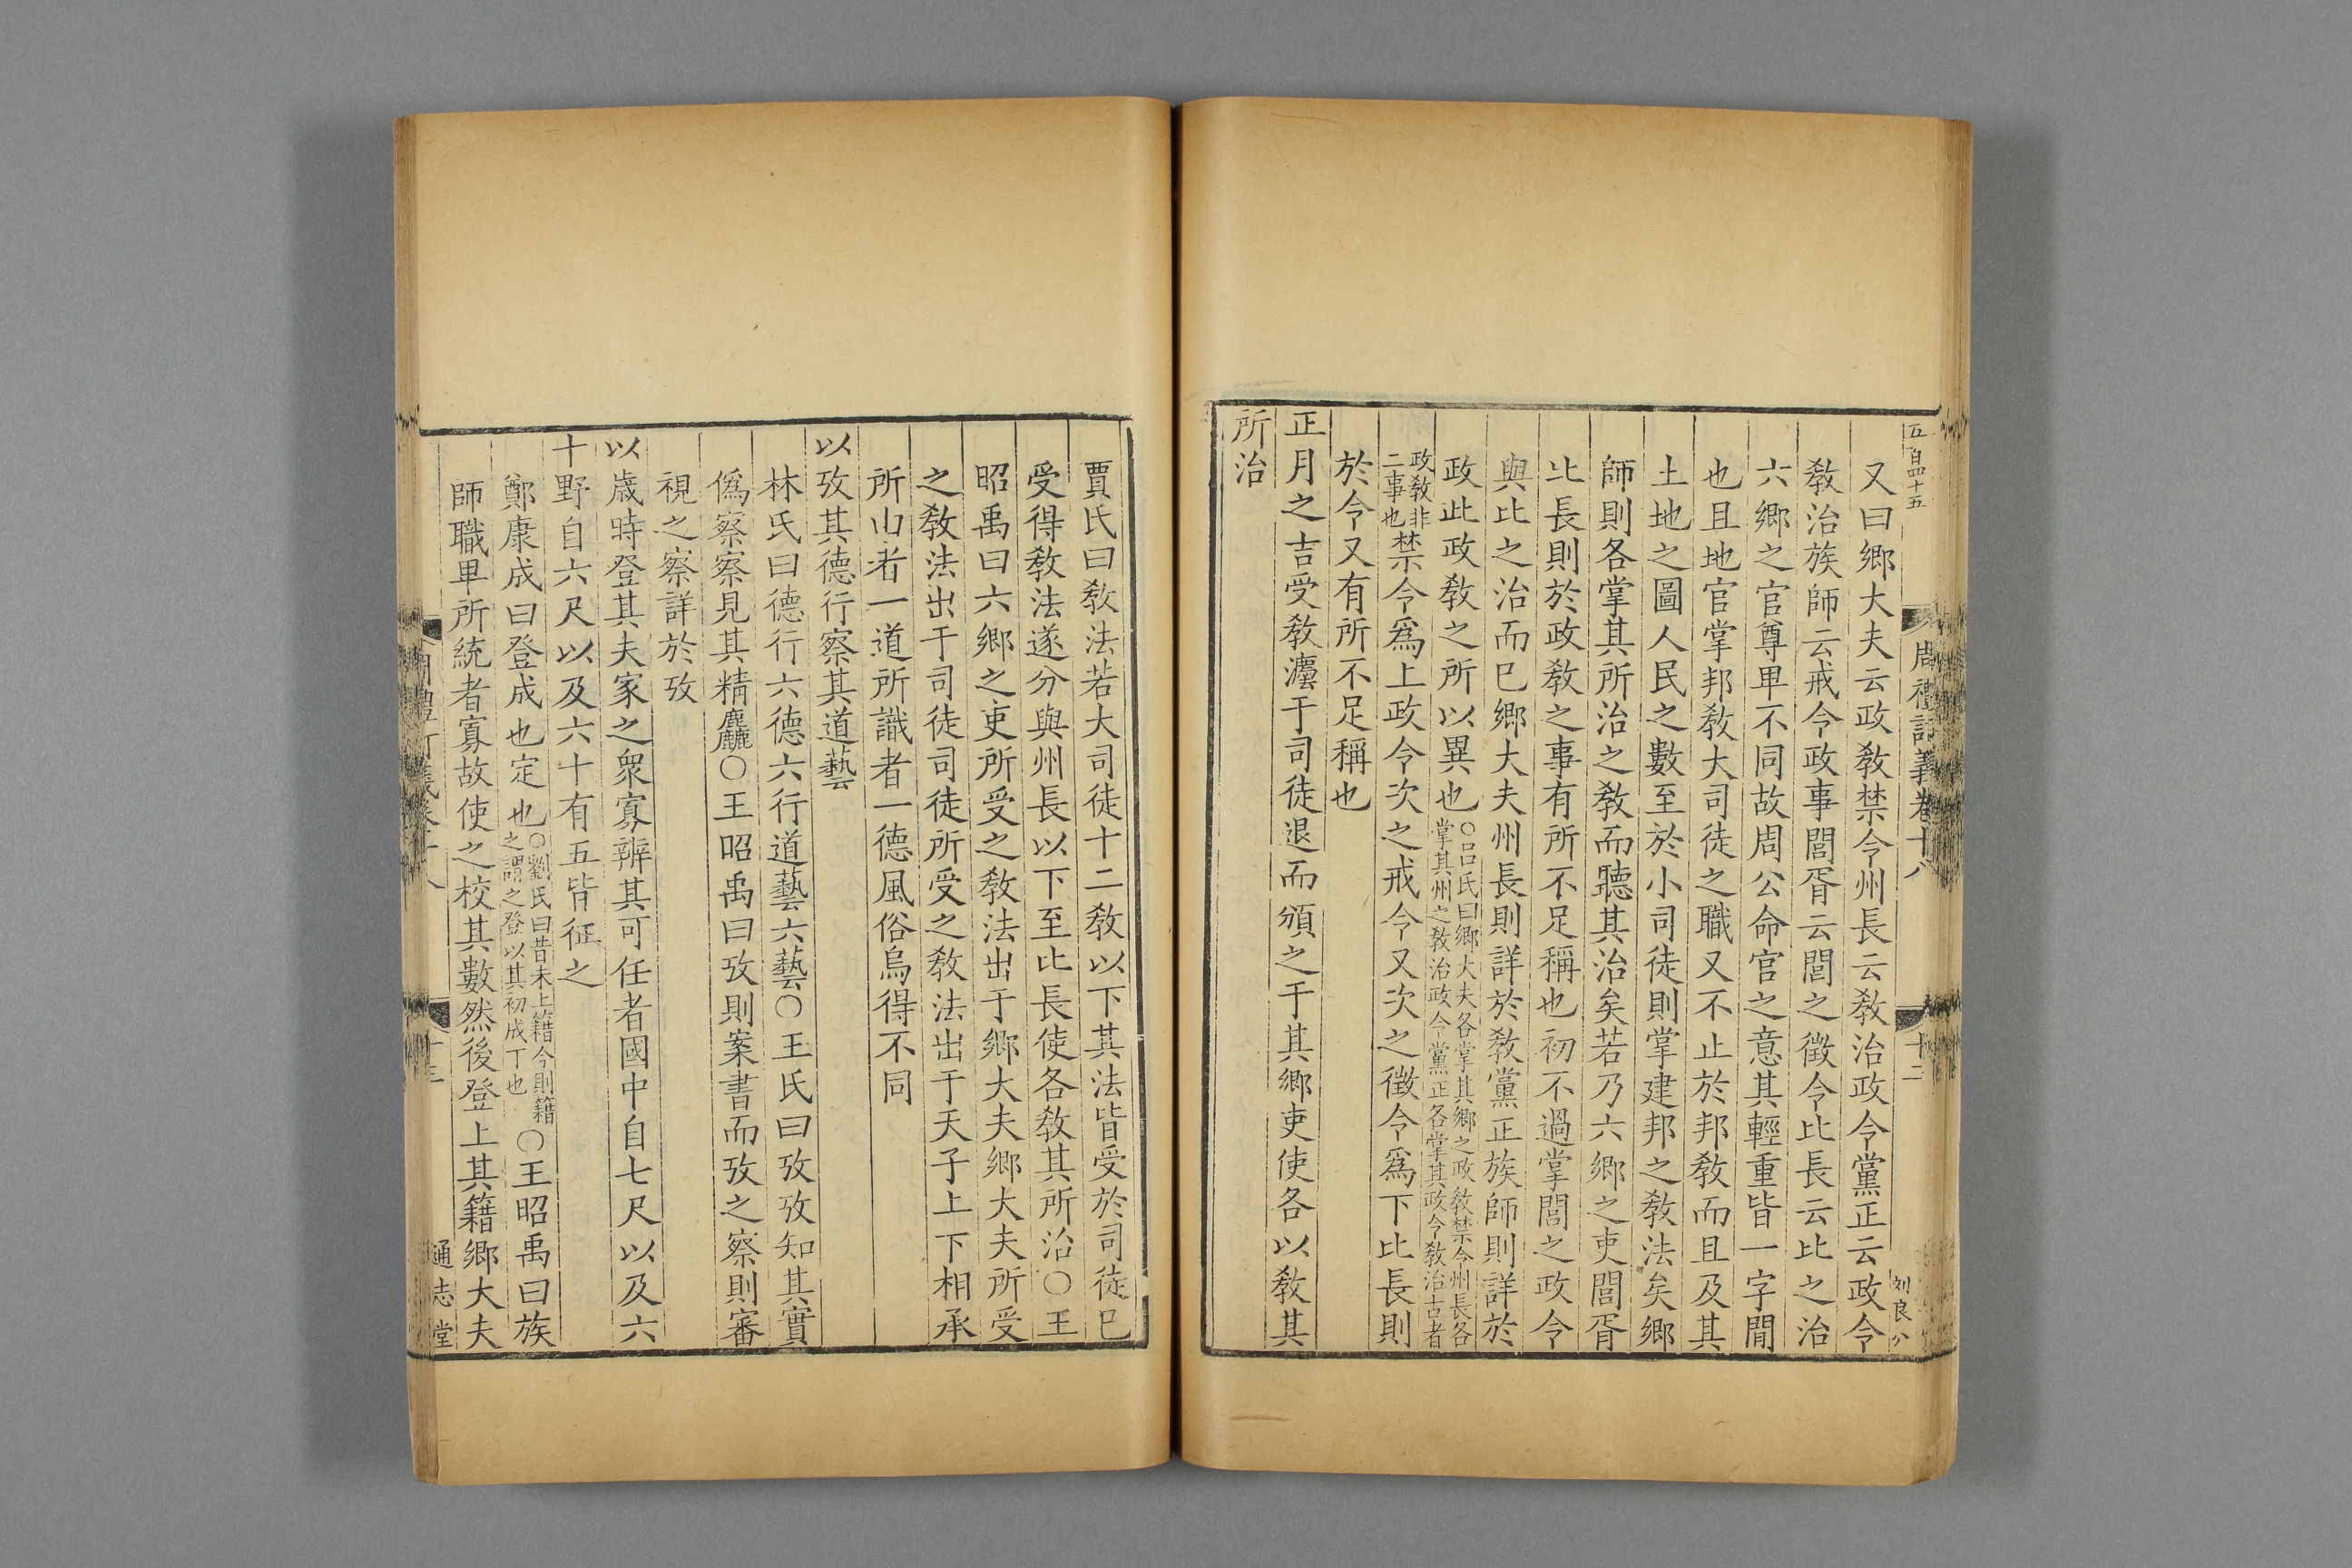 五百四十五
周禮訂義卷十八
十二
刘良公
又曰鄉大夫云政敎禁令州長云敎治政令黨正云政令
敎治族師云戒令政事閭胥云閭之徵令比長云比之治
六鄉之官尊卑不同故周公命官之意其輕重皆一字閒
也且地官掌邦敎大司徒之職又不止於邦敎而且及其
土地之圖人民之數至於小司徒則掌建邦之敎法矣鄉
師則各掌其所治之敎而聽其治矣若乃六鄉之吏閭胥
比長則於政敎之事有所不足稱也初不過掌閭之政令
與比之治而已鄉大夫州長則詳於敎黨正族師則詳於
政此政敎之所以異也○呂氏曰鄉大夫各掌其鄉之政敎禁令州長各
掌其州之敎治政令黨正各掌其政令敎治古者
政敎非
二事也禁令爲上政令次之戒令又次之徵令爲下比長則
於令又有所不足稱也
正月之吉受敎灋于司徒退而頒之于其鄉吏使各以敎其
所治
賈氏曰敎法若大司徒十二敎以下其法皆受於司徒已
受得敎法遂分與州長以下至比長使各敎其所治○王
昭禹曰六鄉之吏所受之敎法出于鄉大夫鄉大夫所受
之敎法出于司徒司徒所受之敎法出于天子上下相承
所由者一道所識者一德風俗烏得不同
以攷其德行察其道藝
林氏曰德行六德六行道藝六藝○王氏曰攷攷知其實
僞察察見其精麤○王昭禹曰攷則案書而攷之察則審
視之察詳於攷
以歳時登其夫家之衆寡辨其可任者國中自七尺以及六
十野自六尺以及六十有五皆征之
鄭康成曰登成也定也○劉氏曰昔未上籍今則籍
之謂之登以其初成丁也○王昭禹曰族
師職卑所統者寡故使之校其數然後登上其籍鄉大夫
周禮訂義卷十八
十三
通志堂